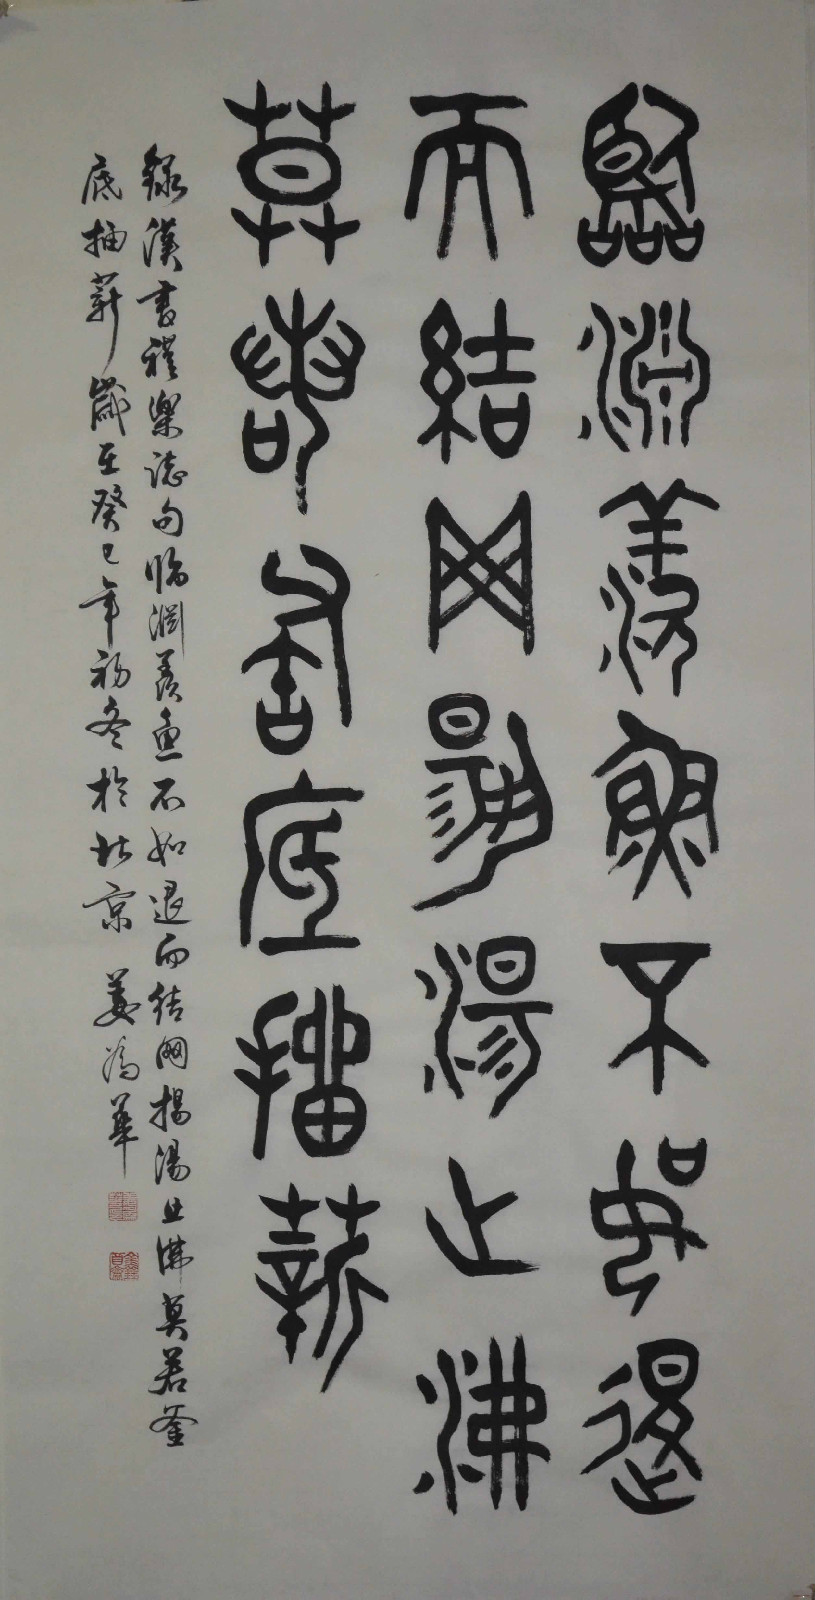 臨淵羨魚不如退
而結网揚湯止沸
莫若釜底抽薪
錄漢書禮樂誌句臨淵羨魚不如退而結網揚湯止沸莫若釜
底抽薪歲在癸巳年初冬於北京姜為華